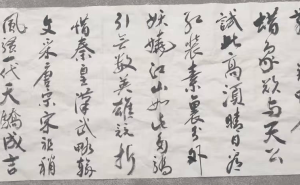 蜡象欲与天公
試比高須晴日看
红装素裹分外
妖嬈江山如此多嬌
引无數英雄競折
惜秦皇漢武略輸
文采唐宗宋祖稍
風騷一代天驕成吉